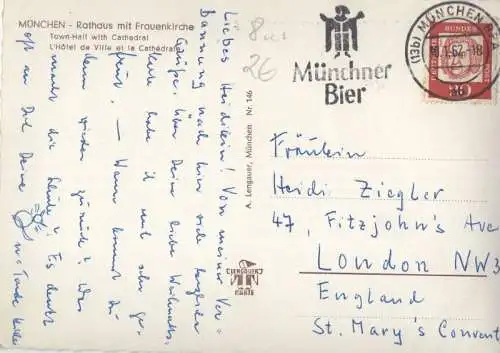 MÜNCHEN - Rathaus mit Frauenkirche
Town-Hall with Cathedral
L'Hôtel de Ville et la Cathédrale
Liebes Heidilein! Von meiner Ver-
bannung nach hier viele herzliche
Grüße. Über Deine liebe Weihnachts-
karte habe ich mich sehr ge-
freut. — Wann kommst Du
denn wieder zurück? Was
macht die Schule? Es denkt
oft an Dich Deine
A. Lengauer, München Nr. 146
LENGAUER
KARTE
26
Münchner
Bier
(13b) MÜNCHEN
62-18
Fräulein
Heidi Ziegler
47, Fitzjohn's Ave
London NW3
England
St. Mary's Convent